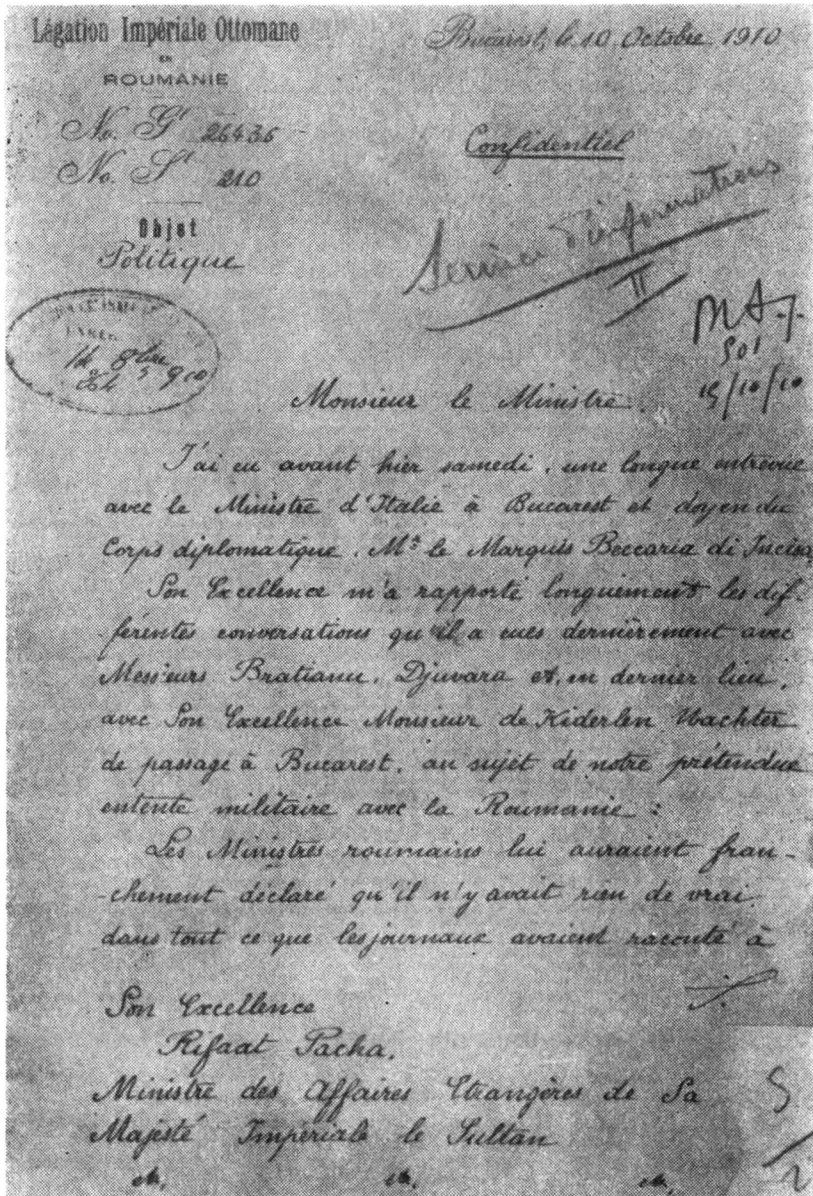 Légation Impériale Ottomane
EN
ROUMANIE
Bucarest, le 10 Octobre 1910
No. Gl 26436
No. Sl 210
Confidentiel
Service d'informations
II
Objet
Politique
14 8bre 910
501
15/10/10
Monsieur le Ministre,
J'ai eu avant hier samedi, une longue entrevue
avec le Ministre d'Italie à Bucarest et doyen du
Corps diplomatique, Mr le Marquis Beccaria di Incisa
Son Excellence m'a rapporté longuement les dif-
-férentes conversations qu'il a eues dernièrement avec
Messieurs Bratianu, Djuvara et, en dernier lieu,
avec Son Excellence Monsieur de Kiderlen Wachter
de passage à Bucarest, au sujet de notre prétendue
entente militaire avec la Roumanie :
Les Ministres roumains lui auraient fran-
-chement déclaré qu'il n'y avait rien de vrai
dans tout ce que les journaux avaient raconté à
./.
Son Excellence
Rifaat Pacha,
Ministre des Affaires Etrangères de Sa
Majesté Impériale le Sultan
etc. etc. etc.